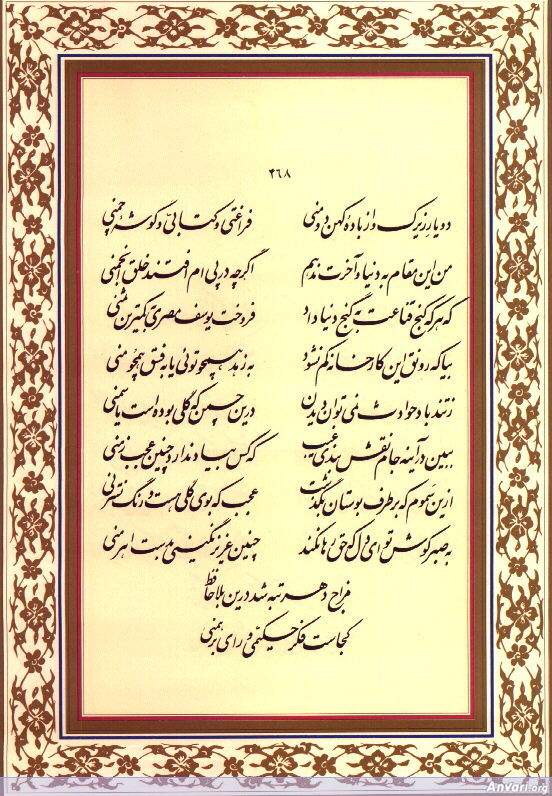 ۴۶۸
دو یار زیرک و از بادهٔ کهن دو منی فراغتی و کتابی و گوشهٔ چمنی
من این مقام به دنیا و آخرت ندهم اگرچه در پی ام افتند خلق انجمنی
که هر که کنج قناعت به گنج دنیا داد فروخت یوسف مصری به کمترین ثمنی
بیا که رونق این کارخانه کم نشود به زهد همچو تویی یا به فسق همچو منی
ز تند باد حوادث نمی توان دیدن درین چمن که گلی بوده است یا سمنی
ببین در آینه جام نقش بندی غیب که کس به یاد ندارد چنین عجب زمنی
ازین سموم که بر طرف بوستان بگذشت عجب که بوی گلی هست و رنگ نسترنی
به صبر کوش تو ای دل که حق رها نکند چنین عزیز نگینی به دست اهرمنی
مزاج دهر تبه شد درین بلا حافظ
کجاست فکر حکیمی و رای برهمنی
Anvari.org